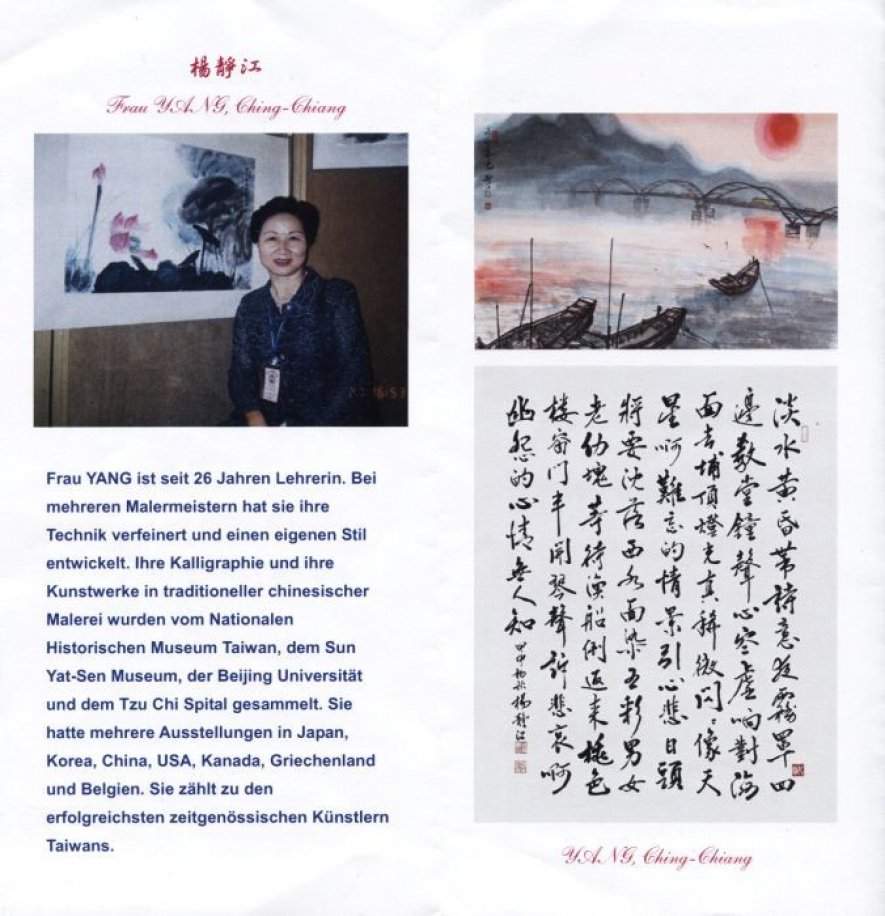 楊靜江
Frau YANG, Ching-Chiang
Frau YANG ist seit 26 Jahren Lehrerin. Bei
mehreren Malermeistern hat sie ihre
Technik verfeinert und einen eigenen Stil
entwickelt. Ihre Kalligraphie und ihre
Kunstwerke in traditioneller chinesischer
Malerei wurden vom Nationalen
Historischen Museum Taiwan, dem Sun
Yat-Sen Museum, der Beijing Universität
und dem Tzu Chi Spital gesammelt. Sie
hatte mehrere Ausstellungen in Japan,
Korea, China, USA, Kanada, Griechenland
und Belgien. Sie zählt zu den
erfolgreichsten zeitgenössischen Künstlern
Taiwans.
淡水黃昏帶詩意夜霧罩四
邊教堂鐘聲心空虛响對海
面去埔頂燈光真稀微閃〻像天
星啊難忘的情景引心悲日頭
將要沈落西水面染五彩男女
老幼塊等待漁船倒返來桃色
樓窗門半開琴聲訴悲哀啊
幽怨的心情無人知
甲申初秋楊靜江
YANG, Ching-Chiang